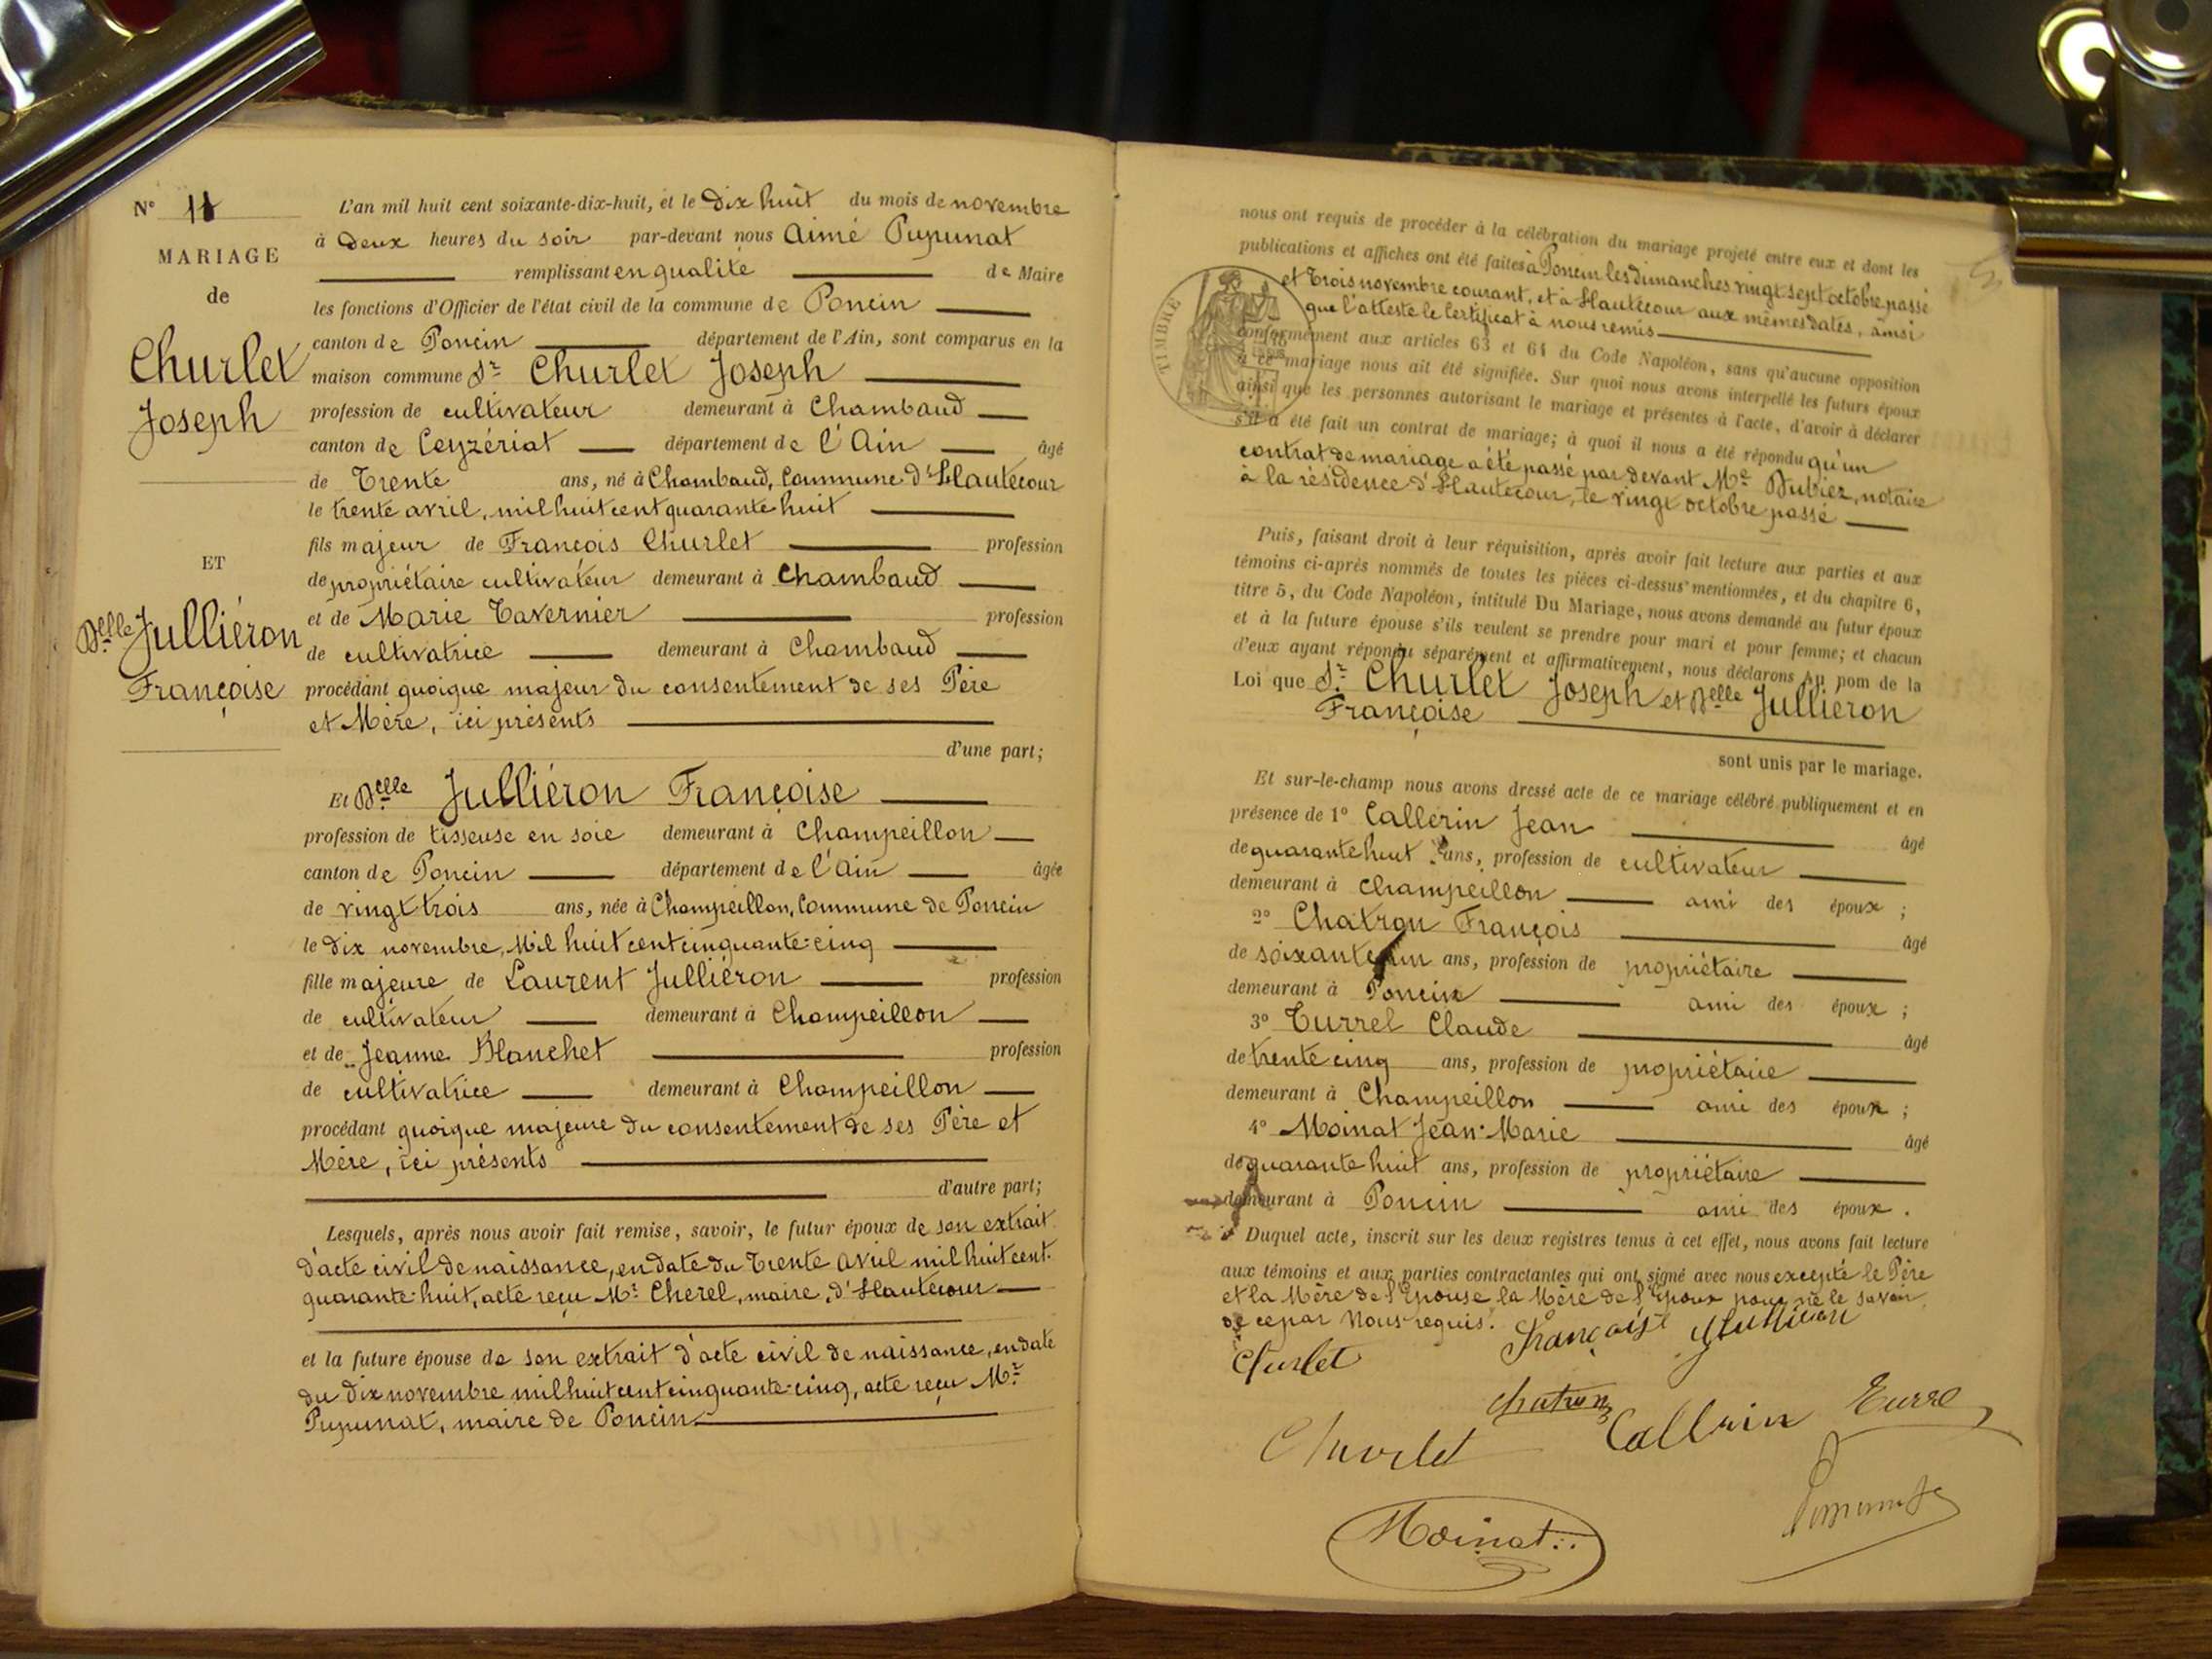 N° 11
MARIAGE
de
Churlet
Joseph
ET
Delle Julliéron
Françoise
L'an mil huit cent soixante-dix-huit, et le dix huit du mois de novembre
à deux heures du soir par-devant nous Aimé Pupunat
remplissant en qualité de Maire
les fonctions d'Officier de l'état civil de la commune de Poncin
canton de Poncin département de l'Ain, sont comparus en la
maison commune Sr Churlet Joseph
profession de cultivateur demeurant à Chambaud
canton de Ceyzériat département de l'Ain âgé
de Trente ans, né à Chambaud, Commune d'Hautecour
le trente avril, mil huit cent quarante huit
fils majeur de François Churlet profession
de propriétaire cultivateur demeurant à Chambaud
et de Marie Tavernier profession
de cultivatrice demeurant à Chambaud
procédant quoique majeur du consentement de ses Père
et Mère, ici présents
d'une part;
Et Delle Julliéron Françoise
profession de tisseuse en soie demeurant à Champeillon
canton de Poncin département de l'Ain âgée
de vingt trois ans, née à Champeillon, Commune de Poncin
le dix novembre, Mil huit cent cinquante-cinq
fille majeure de Laurent Julliéron profession
de cultivateur demeurant à Champeillon
et de Jeanne Blanchet profession
de cultivatrice demeurant à Champeillon
procédant quoique majeure du consentement de ses Père et
Mère, ici présents
d'autre part;
Lesquels, après nous avoir fait remise, savoir, le futur époux de son extrait
d'acte civil de naissance, en date du Trente Avril mil huit cent
quarante-huit, acte reçu Mr Cherel, maire, d'Hautecour
et la future épouse de son extrait d'acte civil de naissance, en date
du dix novembre mil huit cent cinquante-cinq, acte reçu Mr
Pupunat, maire de Poncin
nous ont requis de procéder à la célébration du mariage projeté entre eux et dont les
publications et affiches ont été faites à Poncin les dimanches vingt sept octobre passé
et trois novembre courant, et à Hautecour aux mêmes dates, ainsi
que l'atteste le Certificat à nous remis
TIMBRE
conformément aux articles 63 et 64 du Code Napoléon, sans qu'aucune opposition
à ce mariage nous ait été signifiée. Sur quoi nous avons interpellé les futurs époux
ainsi que les personnes autorisant le mariage et présentes à l'acte, d'avoir à déclarer
s'il a été fait un contrat de mariage; à quoi il nous a été répondu qu'un
contrat de mariage a été passé par devant Me Dubiez, notaire
à la résidence d'Hautecour, le vingt octobre passé
Puis, faisant droit à leur réquisition, après avoir fait lecture aux parties et aux
témoins ci-après nommés de toutes les pièces ci-dessus mentionnées, et du chapitre 6,
titre 5, du Code Napoléon, intitulé Du Mariage, nous avons demandé au futur époux
et à la future épouse s'ils veulent se prendre pour mari et pour femme; et chacun
d'eux ayant répondu séparément et affirmativement, nous déclarons au nom de la
Loi que Sr Churlet Joseph et Delle Julliéron
Françoise
sont unis par le mariage.
Et sur-le-champ nous avons dressé acte de ce mariage célébré publiquement et en
présence de 1° Callerin Jean âgé
de quarante huit ans, profession de cultivateur
demeurant à Champeillon ami des époux ;
2° Chatron François âgé
de soixante un ans, profession de propriétaire
demeurant à Poncin ami des époux ;
3° Turrel Claude âgé
de trente cinq ans, profession de propriétaire
demeurant à Champeillon ami des époux ;
4° Moinat Jean-Marie âgé
de quarante huit ans, profession de propriétaire
demeurant à Poncin ami des époux .
Duquel acte, inscrit sur les deux registres tenus à cet effet, nous avons fait lecture
aux témoins et aux parties contractantes qui ont signé avec nous excepté le Père
et la Mère de l'Epouse, la Mère de l'Epoux pour ne le savoir
de ce par Nous requis.
Churlet Françoise Julliéron
Chatron
Churlet Callerin Turrel
Moinat Pupunat